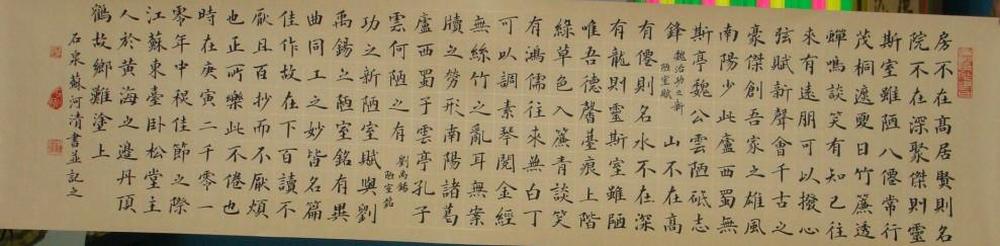 房不在高居賢則名
院不在深聚傑則靈
斯室雖陋八僊常行
茂桐遮夏日竹簾透
蟬鳴談笑有知己往
來有遠朋可以撥心
弦賦新聲會千古之
豪傑創吾家之雄風
南陽少此廬西蜀無
斯亭魏公雲陋砥志
鋒
魏治功之新
陋室賦
山不在高
有僊則名水不在深
有龍則靈斯室雖陋
唯吾德馨薹痕上階
綠草色入簾青談笑
有鴻儒往來無白丁
可以調素琴閱金經
無絲竹之亂耳無案
牘之勞形南陽諸葛
廬西蜀子雲亭孔子
雲何陋之有
劉禹錫
陋室銘
功之新陋室賦與劉
禹錫之陋室銘有異
曲同工之妙皆名篇
佳作故在下百讀不
厭且百抄而不厭煩
也正所樂此不倦也
時在庚寅二千零一
零年中秋佳節之際
江蘇東臺卧松堂主
人於黃海之邊丹頂
鶴故鄉難塗上
石泉蘇河清書並記之